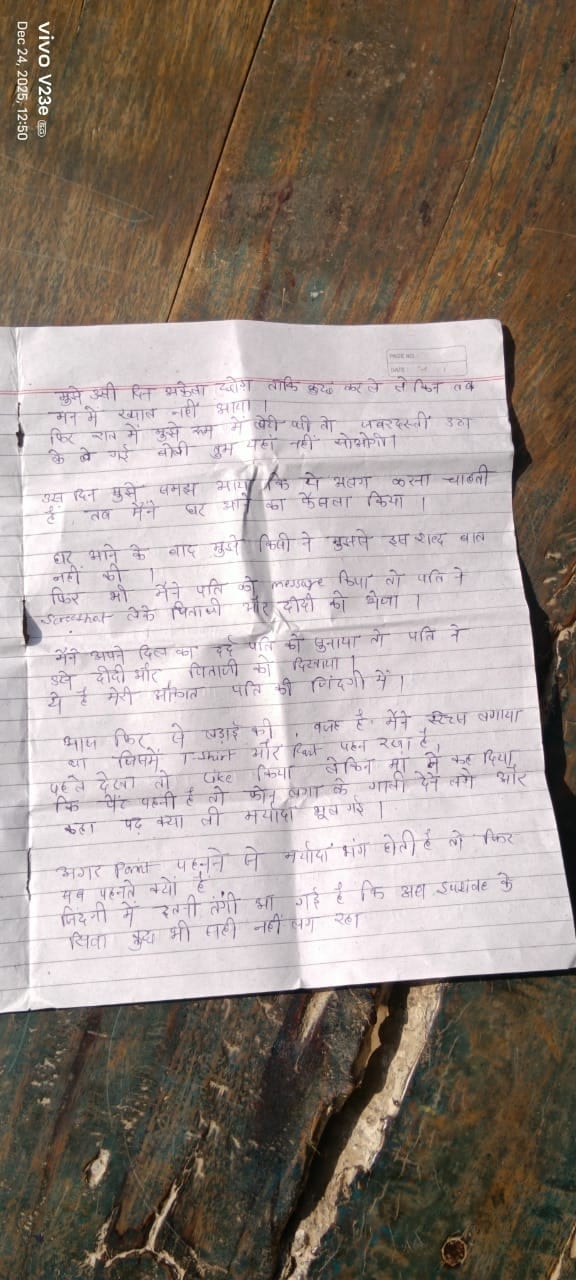 vivo V23e 5G
Dec 24, 2025, 12:50
PAGE NO.
DATE
मुझे उसी दिन अकेला छोड़ा ताकि कुछ कर ले लेकिन तब
मन में ख्याल नहीं आया।
फिर रात में मुझे रूम में सोई थी तो जबरदस्ती उठा
के ले गई बोली तुम यहां नहीं सोओगी।
उस दिन मुझे समझ आया कि ये अलग करना चाहती
हैं, तब मैंने घर आने का फैसला किया।
घर आने के बाद मुझसे किसी ने मुझसे इस शब्द बात
नहीं की।
फिर भी मैंने पति को message किया तो पति ने
Screenshot लेके पिताजी और दीदी को भेजा।
मैंने अपने दिल का दर्द पति को सुनाया तो पति ने
उसे दीदी और पिताजी को दिखाया।
ये है मेरी औकात पति की जिंदगी में।
आज फिर से लड़ाई की, वजह है. मैंने स्टेटस लगाया
था जिसमें T-shirt और Pant पहन रखा है,
पहले देखा तो Like किया लेकिन माँ ने कह दिया
कि पेंट पहनी है तो फोन लगा के गाली देने लगे और
कहा पद क्या ली मर्यादा भूल गई।
अगर Paint पहनने से मर्यादा भंग होती है तो फिर
सब पहनते क्यों है
जिंदगी में इतनी तंगी आ गई है कि अब Suscide के
सिवा कुछ भी सही नहीं लग रहा